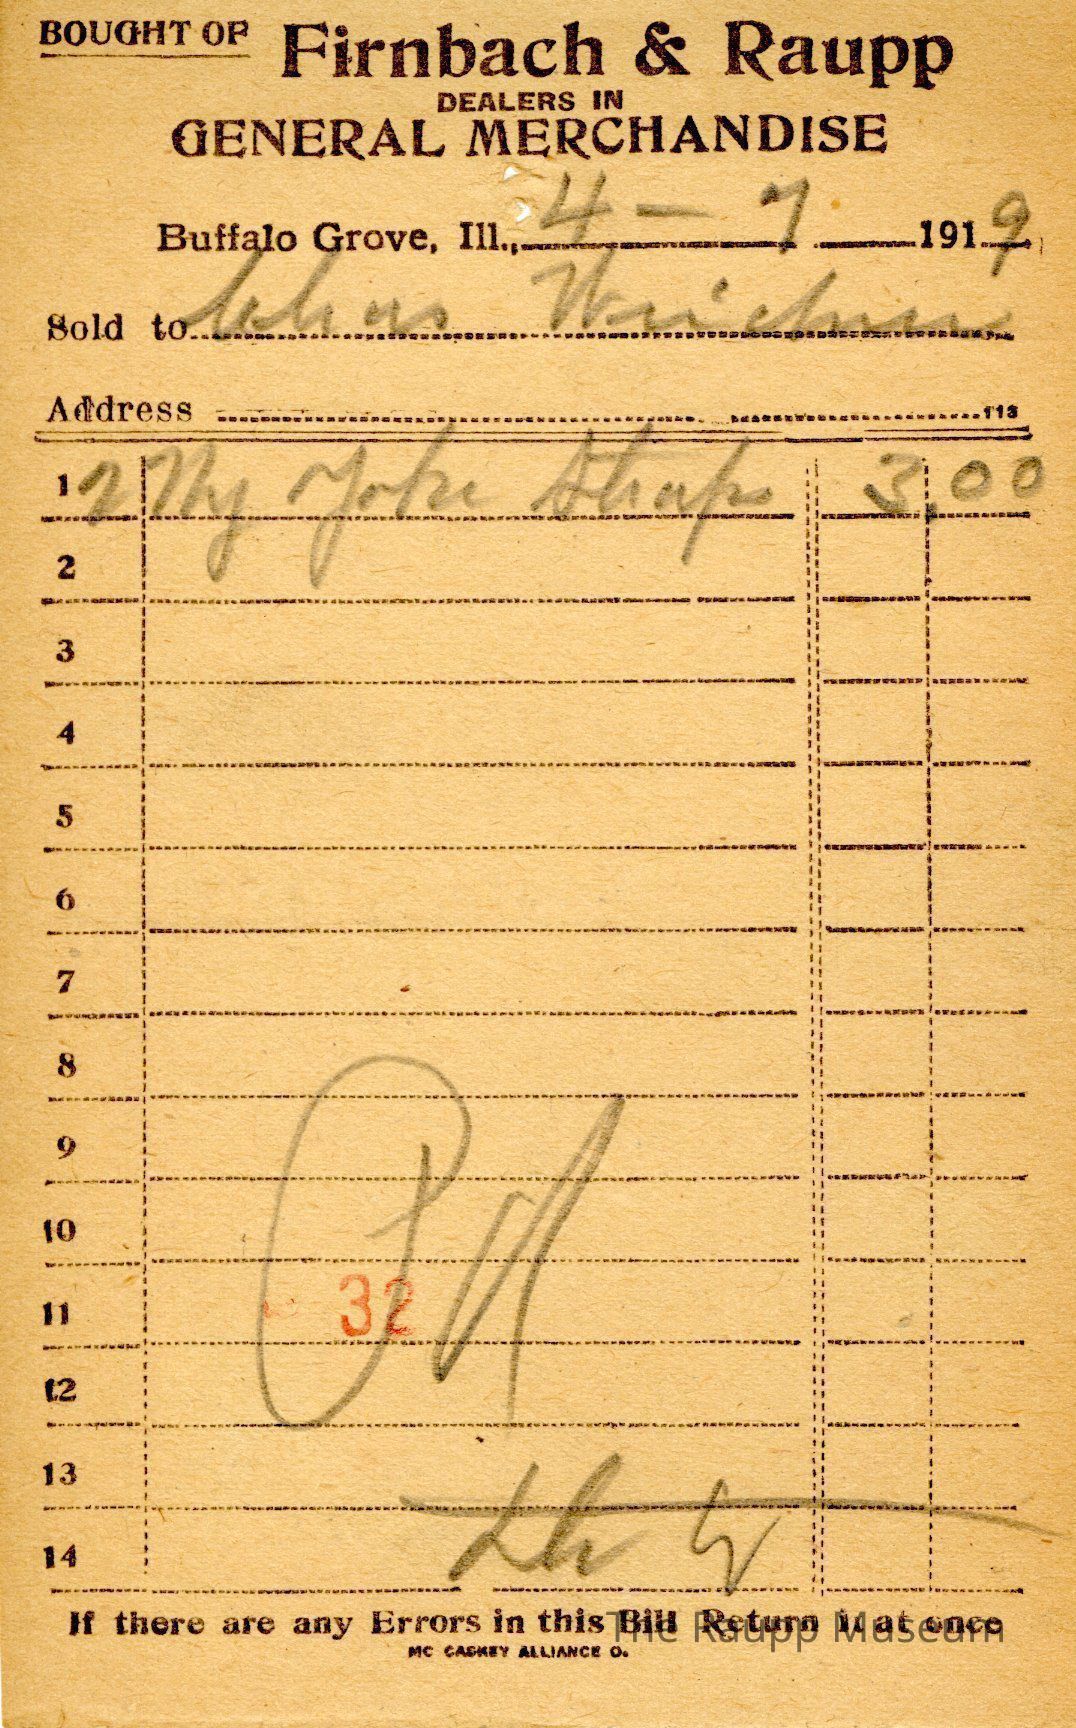 BOUGHT OF Firnbach & Raupp
DEALERS IN
GENERAL MERCHANDISE
Buffalo Grove, Ill., 4 - 7 1919
Sold to Chas
Address 113
1 2 Yoke Strap 3.00
2
3
4
5
6
7
8
9
10
11 32
12
13
14
If there are any Errors in this Bill Return it at once
The Raupp Museum
MC CASKEY ALLIANCE O.